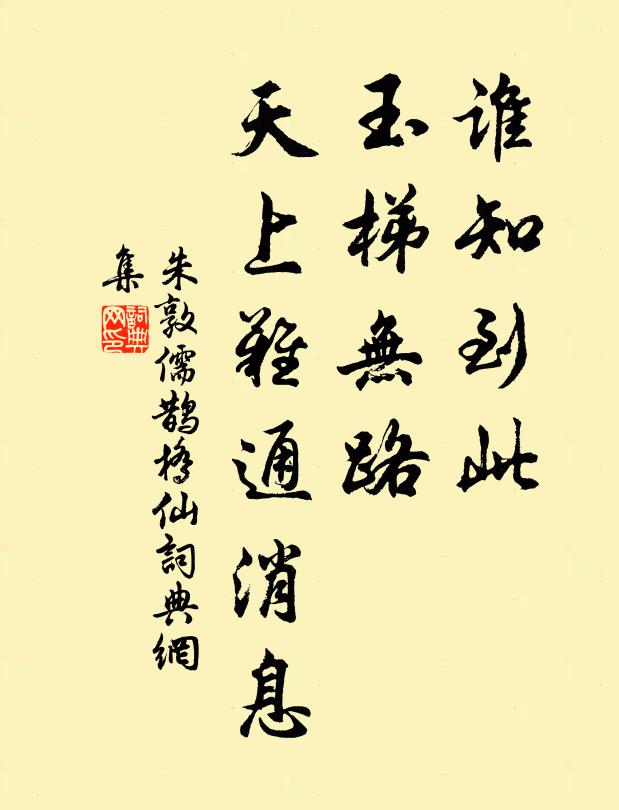 誰知到此
玉梯無路
天上難通消息
朱敦儒鵲橋仙詞典網
集
詞典
网印